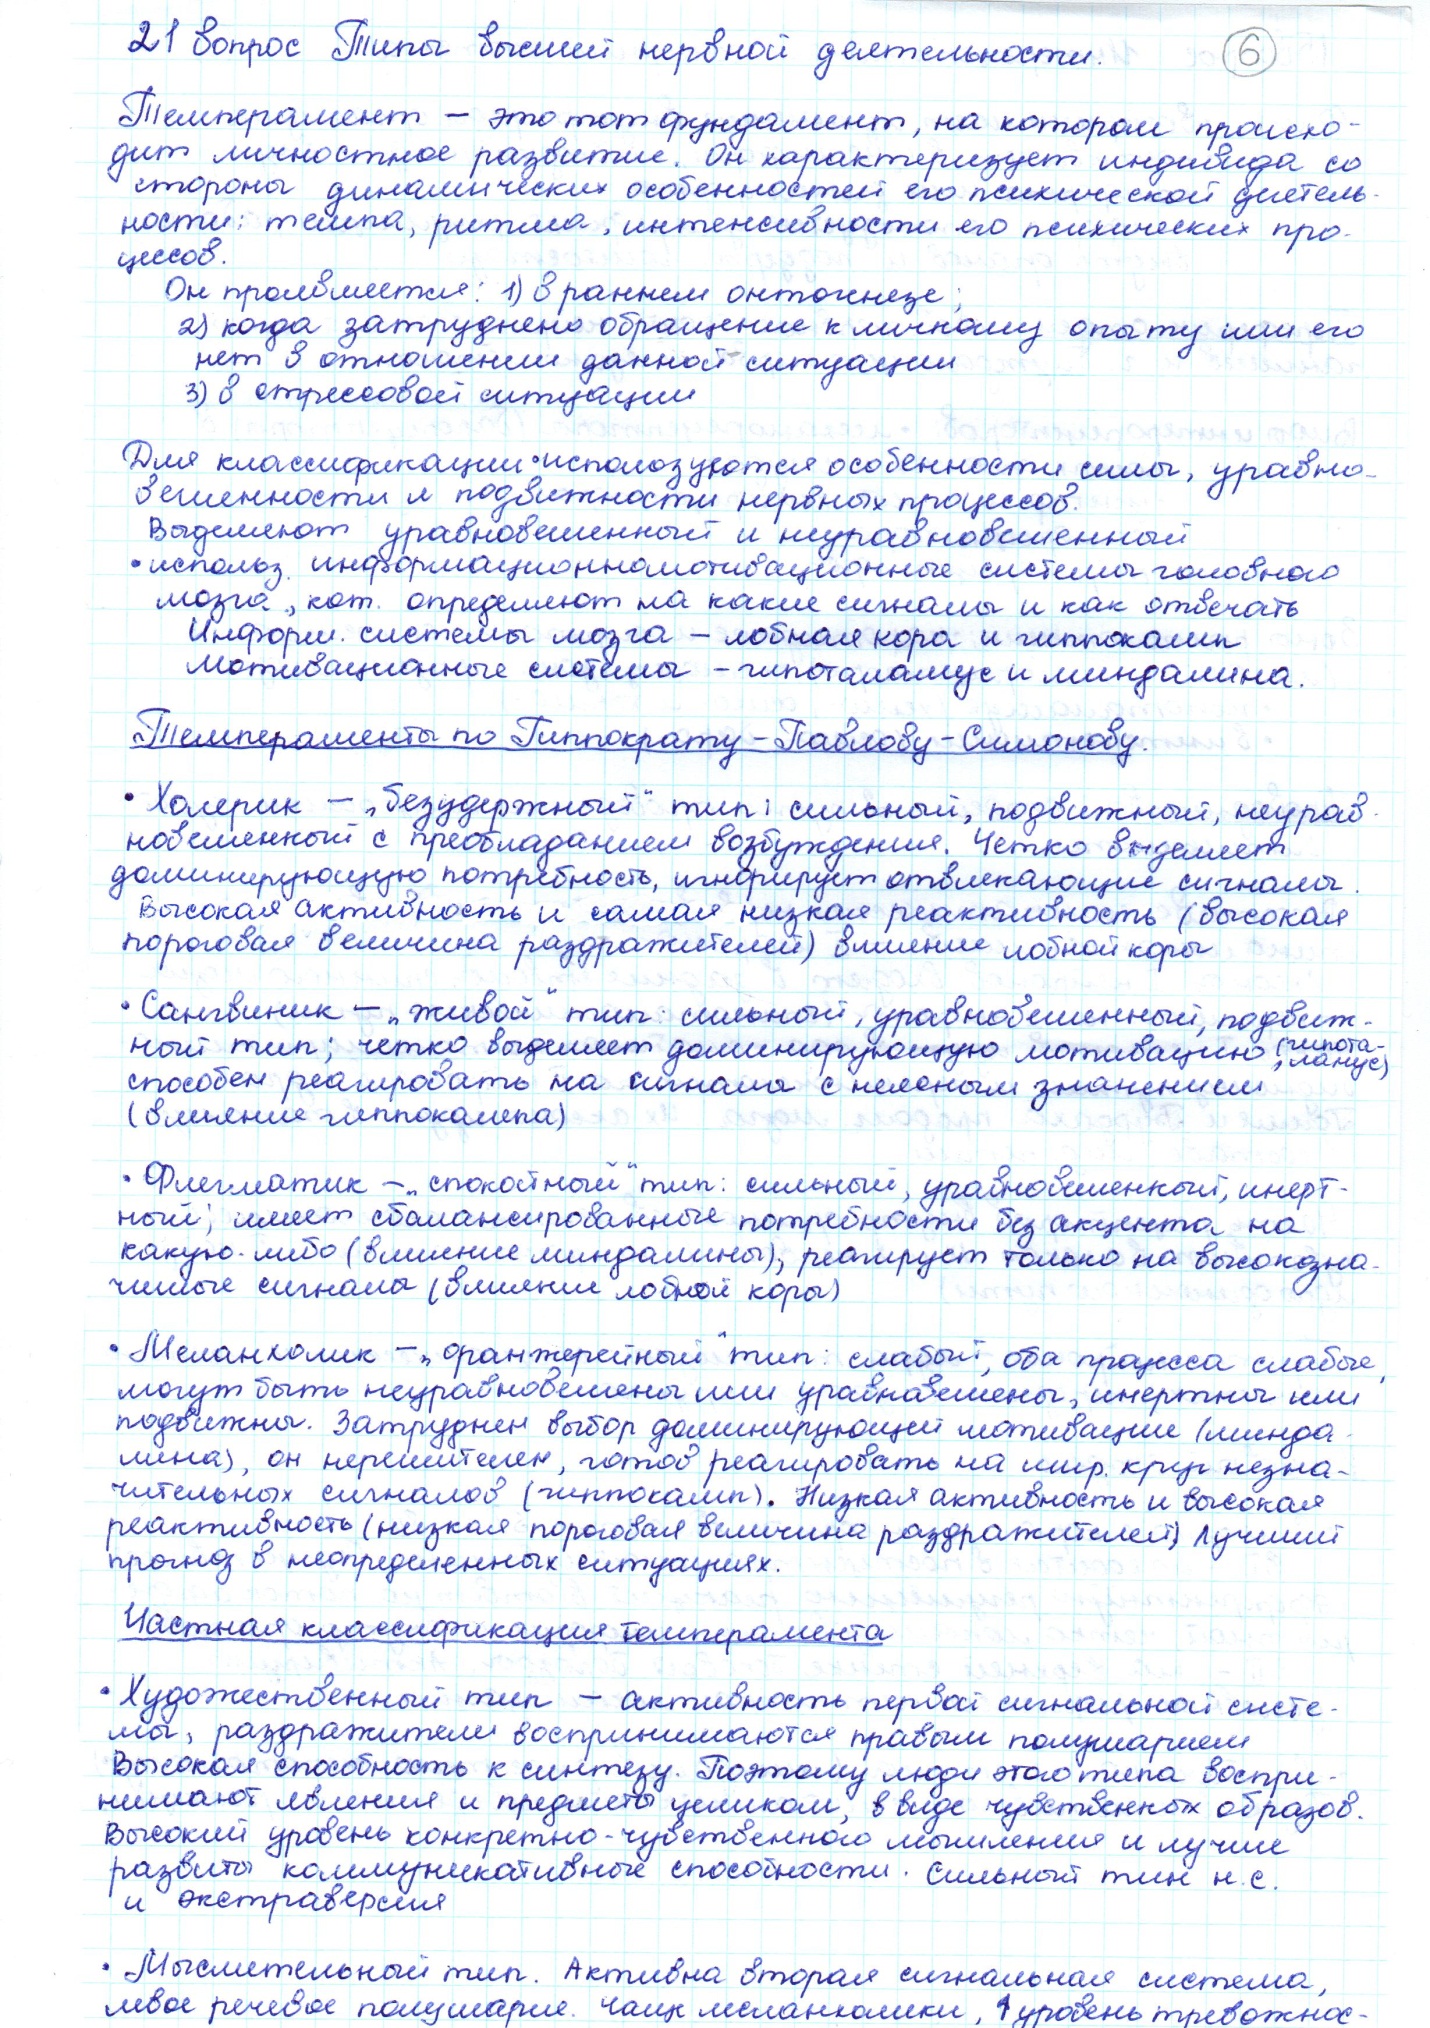 21 вопрос Типы высшей нервной деятельности.
6
Темперамент – это тот фундамент, на котором происхо-
дит личностное развитие. Он характеризует индивида со
стороны динамических особенностей его психической деятель-
ности: темпа, ритма, интенсивности его психических про-
цессов.
Он проявляется: 1) В раннем онтогенезе;
2) когда затруднено обращение к личному опыту или его
нет в отношении данной ситуации
3) в стрессовой ситуации
Для классификации • используются особенности силы, уравно-
вешенности и подвижности нервных процессов.
Выделяют уравновешенный и неуравновешенный
• использ. информационномотивационные системы головного
мозга, кот. определяют на какие сигналы и как отвечать
Информ. системы мозга – лобная кора и гиппокамп
мотивационные системы – гипоталамус и миндалина.
Темпераменты по Гиппократу-Павлову-Симонову.
• Холерик – „безудержный“ тип: сильный, подвижный, неурав-
новешенный с преобладанием возбуждения. Четко выделяет
доминирующую потребность, игнорирует отвлекающие сигналы.
Высокая активность и самая низкая реактивность (высокая
пороговая величина раздражителей) влияние лобной коры
• Сангвиник – „живой“ тип: сильный, уравновешенный, подвиж-
ный тип; четко выделяет доминирующую мотивацию (гипота-
ламус)
способен реагировать на сигналы с неясным значением
(влияние гиппокампа)
• Флегматик – „спокойный“ тип: сильный, уравновешенный, инерт-
ный; имеет сбалансированные потребности без акцента на
какую-либо (влияние миндалины), реагирует только на высокозна-
чимые сигналы (влияние лобной коры)
• Меланхолик – „оранжерейный“ тип: слабый, оба процесса слабые,
могут быть неуравновешены или уравновешены, инертны или
подвижны. Затруднен выбор доминирующей мотивации (минда-
лина), он нерешителен, готов реагировать на шир. круг незна-
чительных сигналов (гиппокамп). Низкая активность и высокая
реактивность (низкая пороговая величина раздражителей) Лучший
прогноз в неопределенных ситуациях.
Частная классификация темперамента
• Художественный тип – активность первой сигнальной систе-
мы, раздражители воспринимаются правым полушарием
Высокая способность к синтезу. Поэтому люди этого типа воспри-
нимают явления и предметы целиком, в виде чувственных образов.
Высокий уровень конкретно-чувственного мышления и лучше
развиты коммуникативные способности. Сильный тип н.с.
и экстраверсия
• Мыслительный тип. Активна вторая сигнальная система,
левое речевое полушарие. Чащк меланхолики, ↑ уровень тревожнос-